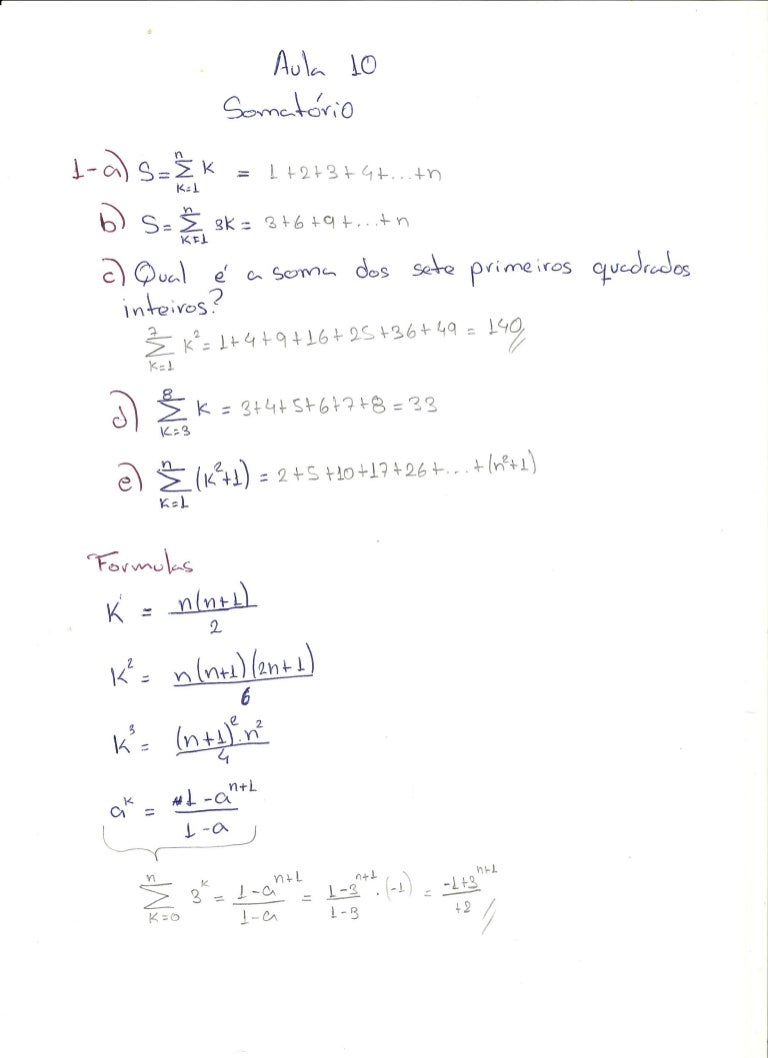 Aula 10
Somatório
1-a) S = ∑_{K=1}^{n} K = 1+2+3+4+...+n
b) S = ∑_{K=1}^{n} 3K = 3+6+9+...+n
c) Qual é a soma dos sete primeiros quadrados
inteiros?
∑_{K=1}^{7} K² = 1+4+9+16+25+36+49 = 140//
d) ∑_{K=3}^{8} K = 3+4+5+6+7+8 = 33
e) ∑_{K=1}^{n} (K²+1) = 2+5+10+17+26+...+(n²+1)
Formulas
K = n(n+1)/2
K² = n(n+1)(2n+1)/6
K³ = (n+1)².n²/4
a^K = 1-a^{n+1}/1-a
∑_{K=0}^{n} 3^K = 1-a^{n+1}/1-a = 1-3^{n+1}/1-3 .(-1) = -1+3^{n+1}/+2 //